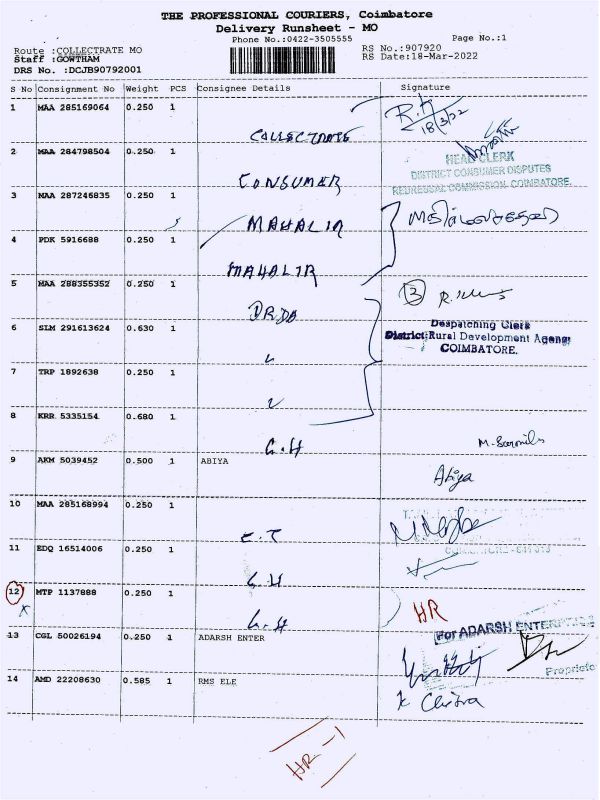 THE PROFESSIONAL COURIERS, Coimbatore
Delivery Runsheet - MO
Phone No.:0422-3505555
Page No.:1
Route :COLLECTRATE MO
RS No.:907920
Staff :GOWTHAM
RS Date:18-Mar-2022
DRS No. :DCJB90792001
S No Consignment No Weight PCS Consignee Details Signature
1 MAA 285169064 0.250 1
COLLECTRATE
18/3/22
2 MAA 284798504 0.250 1
HEAD CLERK
DISTRICT CONSUMER DISPUTES
REDRESSAL COMMISSION, COIMBATORE.
CONSUMER
3 MAA 287246835 0.250 1
MAHALIR
4 PDK 5916688 0.250 1
MAHALIR
5 MAA 288355352 0.250 1
3
DRDA
Despatching Clerk
District Rural Development Agency
COIMBATORE.
6 SLM 291613624 0.630 1
7 TRP 1892638 0.250 1
8 KRR 5335154 0.680 1
G.H
9 AKM 5039452 0.500 1 ABIYA
Abiya
10 MAA 285168994 0.250 1
11 EDQ 16514006 0.250 1
G.H
12 MTP 1137888 0.250 1
HR
G.H
For ADARSH ENTERPRISES
13 CGL 50026194 0.250 1 ADARSH ENTER
Proprietor
14 AMD 22208630 0.585 1 RMS ELE
Chitra
HR-1